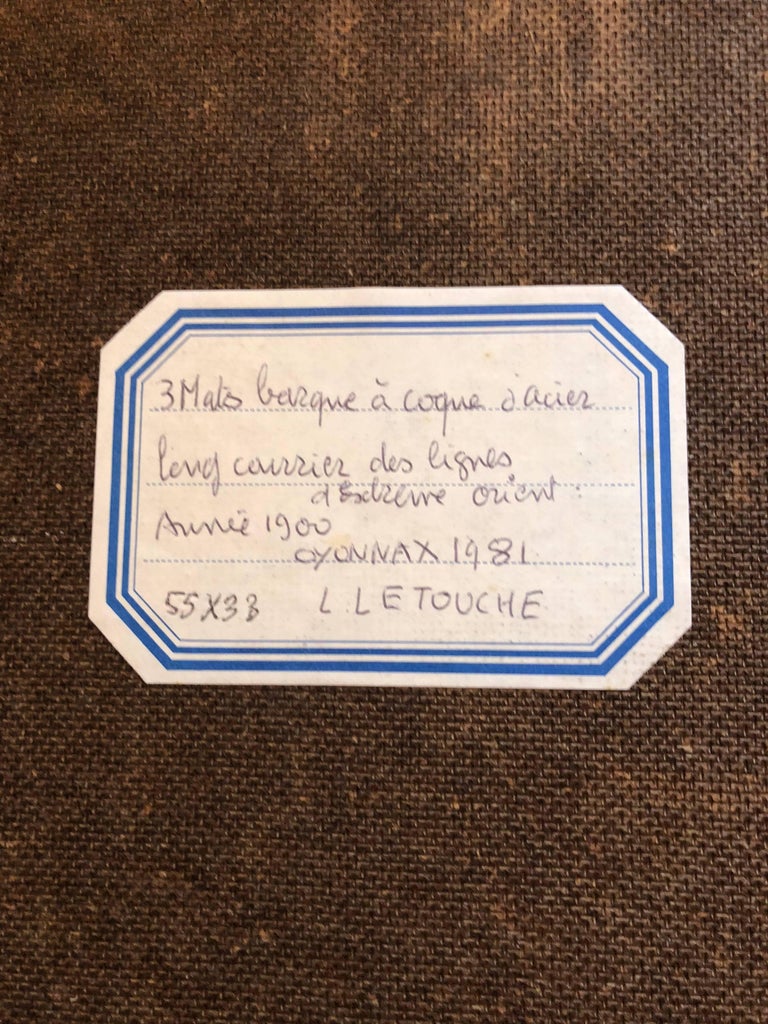 3 Mats barque à coque d'acier
long courrier des lignes
d'Extrême orient.
Année 1900
OYONNAX 1981
55X33 L LETOUCHE